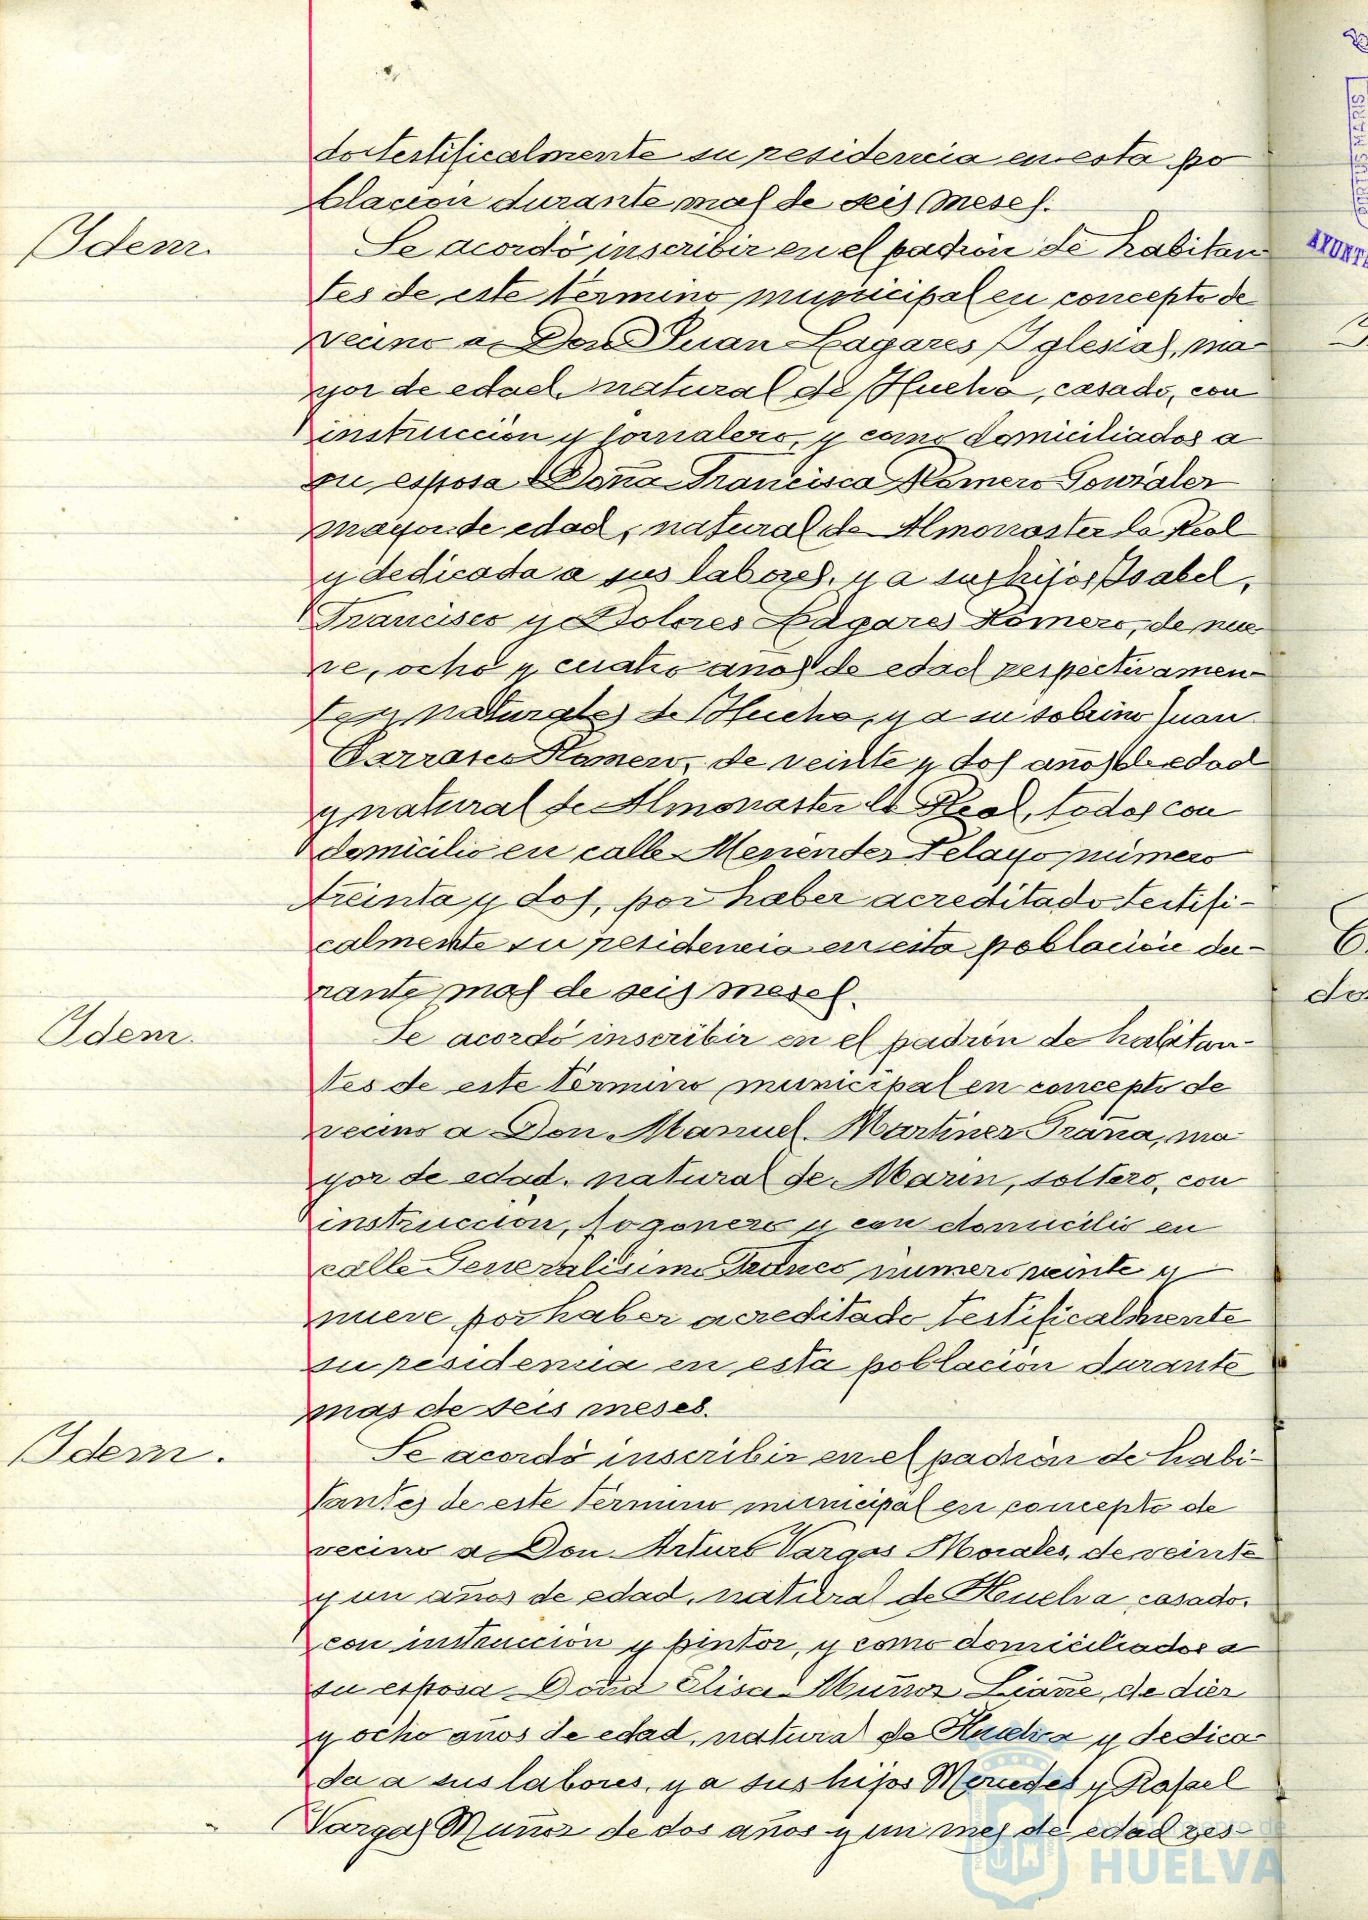 do testificalmente su residencia en esta po
blacion durante mas de seis meses.
Idem.
Se acordó inscribir en el padrón de habitan
tes de este término municipal en concepto de
vecino a Don Juan Lagares Iglesias, ma-
yor de edad, natural de Huelva, casado, con
instrucción y jornalero, y como domiciliados a
su esposa Doña Francisca Romero González
mayor de edad, natural de Almonaster la Real
y dedicada a sus labores, y a sus hijos Isabel,
Francisco y Dolores Lagares Romero, de nue-
ve, ocho y cuatro años de edad respectivamen-
te y naturales de Huelva, y a su sobrino Juan
Carrasco Romero, de veinte y dos años de edad
y natural de Almonaster la Real, todos con
domicilio en calle Menéndez Pelayo número
treinta y dos, por haber acreditado testifi-
calmente su residencia en esta población du-
rante mas de seis meses.
Idem.
Se acordó inscribir en el padrón de habitan-
tes de este término municipal en concepto de
vecino a Don Manuel Martinez Graña, ma
yor de edad, natural de Marin, soltero, con
instrucción, fogonero y con domicilio en
calle Generalísimo Franco número veinte y
nueve por haber acreditado testificalmente
su residencia en esta poblacion durante
mas de seis meses.
Idem.
Se acordó inscribir en el padrón de habi-
tantes de este término municipal en concepto de
vecino a Don Arturo Vargas Morales, de veinte
y un años de edad, natural de Huelva, casado,
con instrucción y pintor, y como domiciliados a
su esposa Doña Elisa Muñoz de diez
y ocho años de edad, natural de Huelva y dedica-
da a sus labores, y a sus hijos Mercedes y Rafael
Vargas Muñoz de dos años y un mes de edad res-
Ayuntamiento de
HUELVA